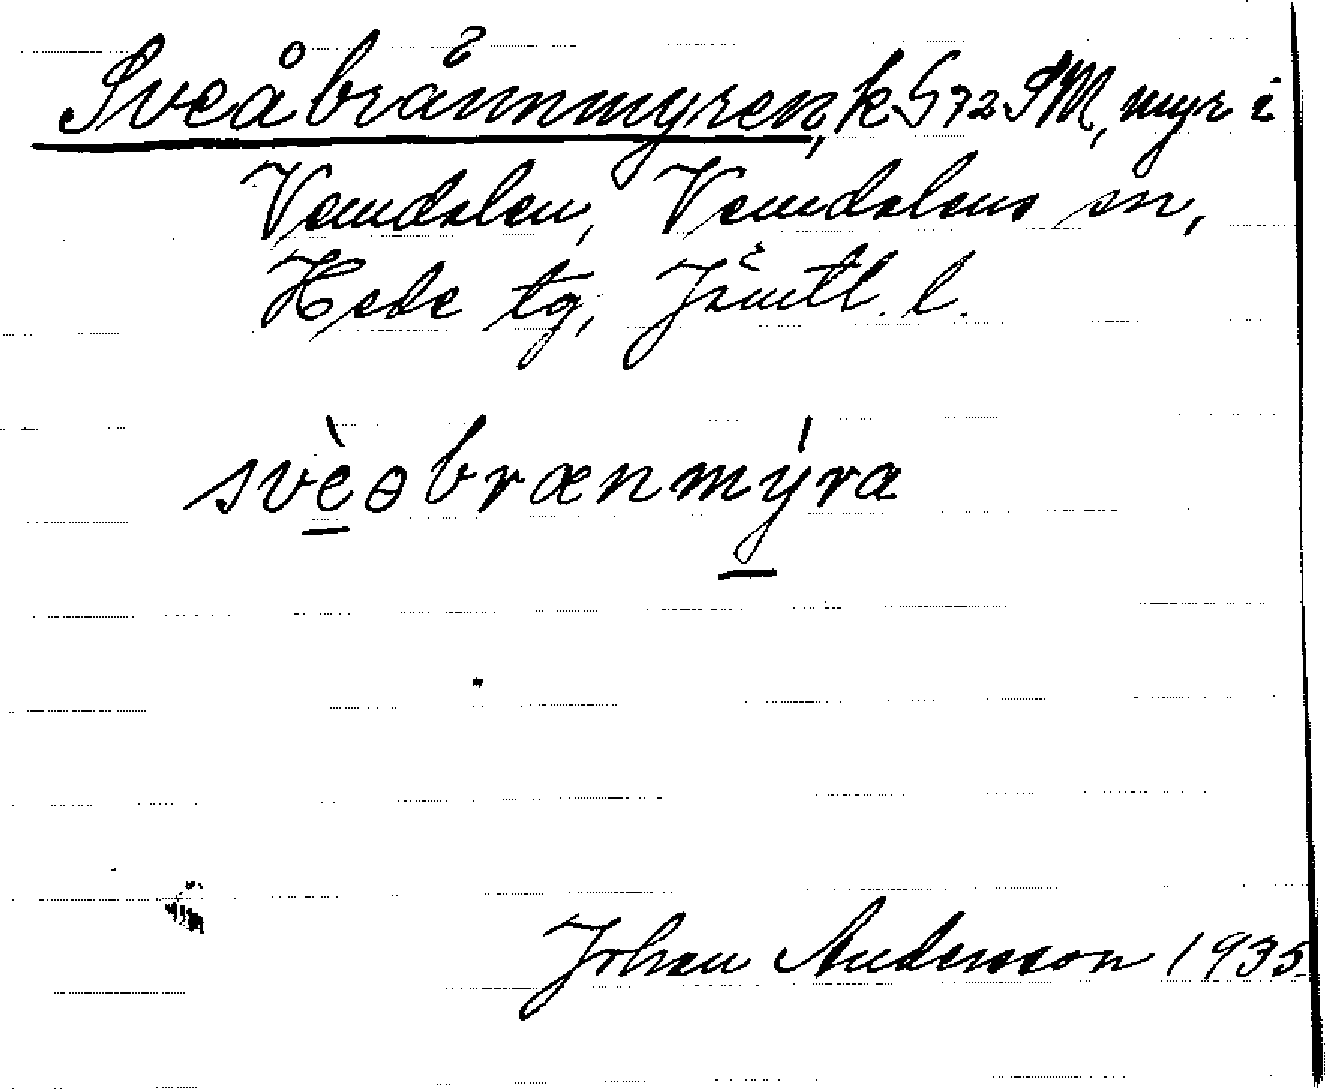 Sveåbrännmyren, k G 72 SM, myr i
Vemdalen, Vemdalens sn,
Hede tg, Jämtl. l.
svèobrænmýra
Johan Andersson 1935